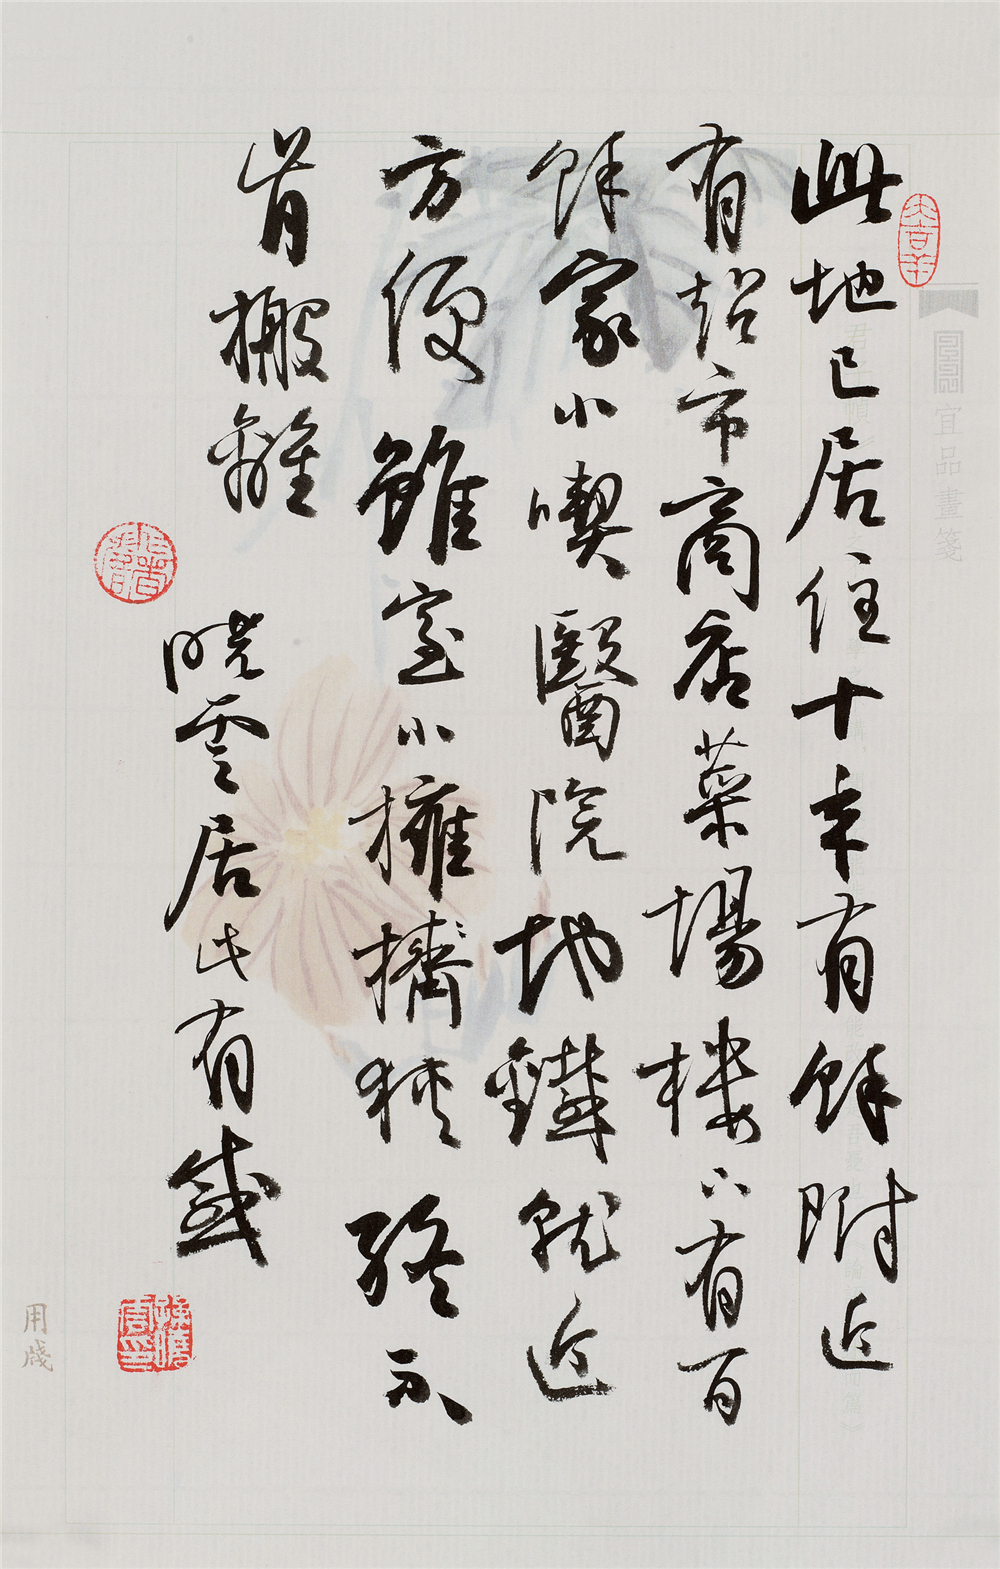 此地已居住十年有餘附近
有超市商店菜場樓下有百
餘家小喫醫院地鐵就近
方便雖室小擁擠狹終不
肯搬離
曉雲居此有感
大吉羊
宜品畫箋
用牋